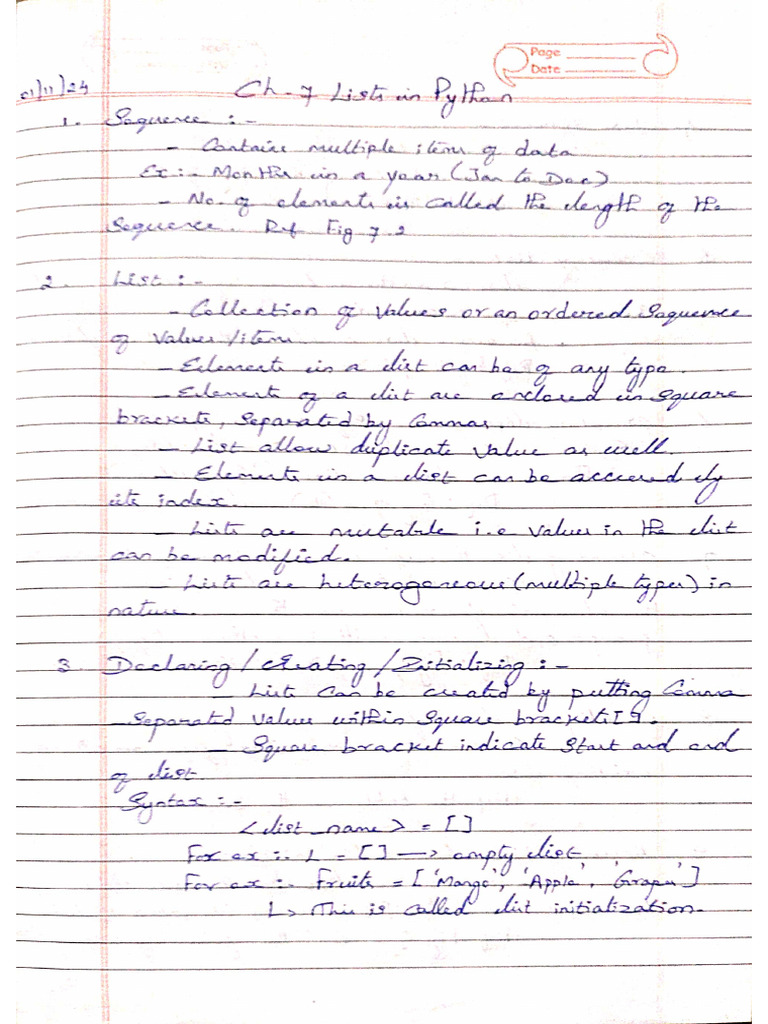 Page
Date
01/11/24 Ch-7 Lists in Python
1. Sequence :-
- Contains multiple items of data
Ex:- Months in a year (Jan to Dec)
- No. of elements is called the length of the
Sequence. Ref Fig 7.2
2. List :-
- Collection of values or an ordered Sequence
of values/items
- Elements in a list can be of any type.
- Elements of a list are enclosed in square
brackets, separated by Commas.
- List allow duplicate value as well.
- Elements in a list can be accessed by
its index.
- Lists are mutable i.e values in the list
can be modified.
- Lists are heterogeneous (multiple types) in
nature.
3. Declaring/Creating/Initializing :-
- Lists can be created by putting Comma
-Separated values within square brackets[].
- Square bracket indicate start and end
of list
Syntax :-
<list_name> = []
For ex :- L = [] → empty list
For ex :- Fruits = ['Mango', 'Apple', 'Grapes']
↳ This is called list initialization.